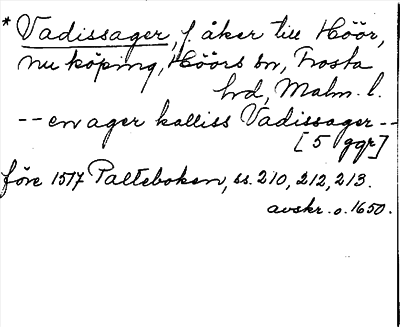 * Vadissager, f. åker till Höör,
nu köping, Höörs sn, Frosta
hd, Malm. l.
-- en ager kalliss Vadissager --
[5 ggr]
före 1517 Palteboken, ss. 210, 212, 213.
avskr. o. 1650.